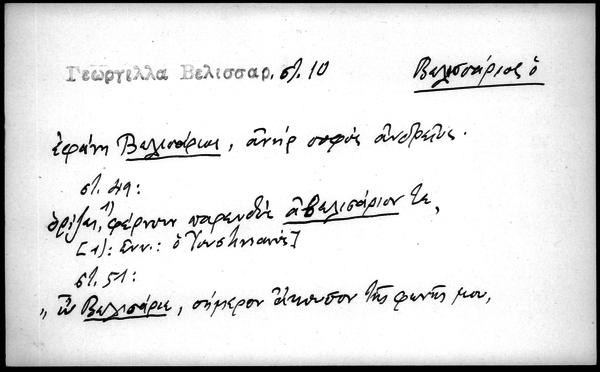 Γεωργιλλα Βελισσαρ, στ. 10 Βελισσάριος ὁ
ἐφάνη Βελισάριος, ἀνὴρ σοφὸς ἀνδρεῖος.
στ. 49:
ὁρίζει,¹⁾ φέρνουν παρευθὺς Βελισάριον τε,
[1): ἐνν.: ὁ Ἰουστινιανὸς]
στ. 51:
„ὦ Βελισάριε, σήμερον ἄκουσον τῆς φωνῆς μου,